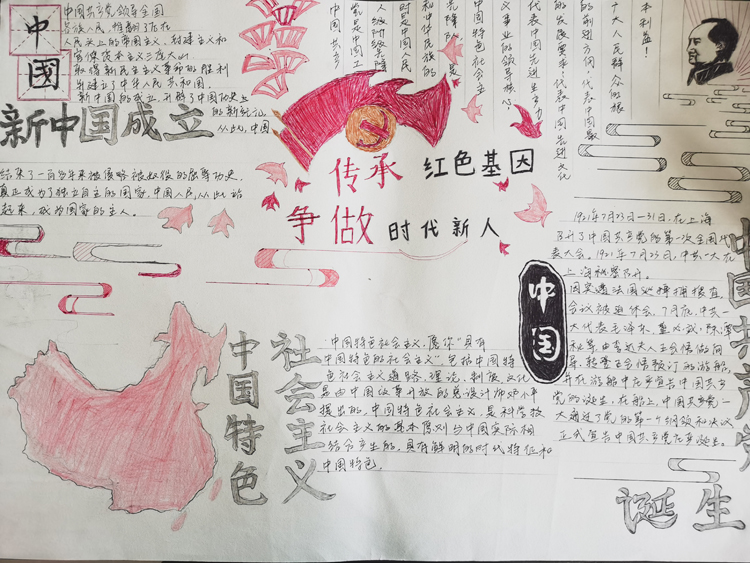 中國
中国共产党领导全国
各族人民,推翻了压在
人民头上的帝国主义、封建主义和
官僚资本主义三座大山
取得新民主主义革命的胜利
创建立了中华人民共和国。
新中国的成立,开辟了中国历史上
的新纪元。
从此,中国
新中国成立
结束了一百多年来被侵略被奴役的屈辱历史,
真正成为了独立自主的国家,中国人民从此站
起来,成为国家的主人。
中国共产
党是中国工
人阶级先锋
时是中国人民
和中华民族的
先锋队,是
中国特色社会主
义事业的领导核心
代表中国先进生产力
的发展要求,代表中国先进文化
的前进方向,代表中国最
广大人民群众的根
本利益!
传承 红色基因
争做 时代新人
1921年7月23日-31日,在上海
召开了中国共产党的第一次全国代
表大会。1921年7月23日,中共一大在
上海秘密召开。
会议被迫休会。7月底,中共一
大代表毛泽东、董必武、陈潭
秋等,由李达夫人王会悟做向
导,转登王会悟预订的游船,
并在游船中庄严宣告中国共产
党的诞生。在船上,中国共产党一
大通过了党的第一个纲领和决议
正式宣告中国共产党庄严诞生。
中国
中国共产党
诞生
社会主义
中国特色
中国特色的社会主义",包括中国特
色社会主义道路、理论、制度、文化
是由中国改革开放的总设计师邓小平
提出的。中国特色社会主义,是科学技
社会主义的基本原则与中国实际相
结合产生的,具有鲜明的时代特征和
中国特色。